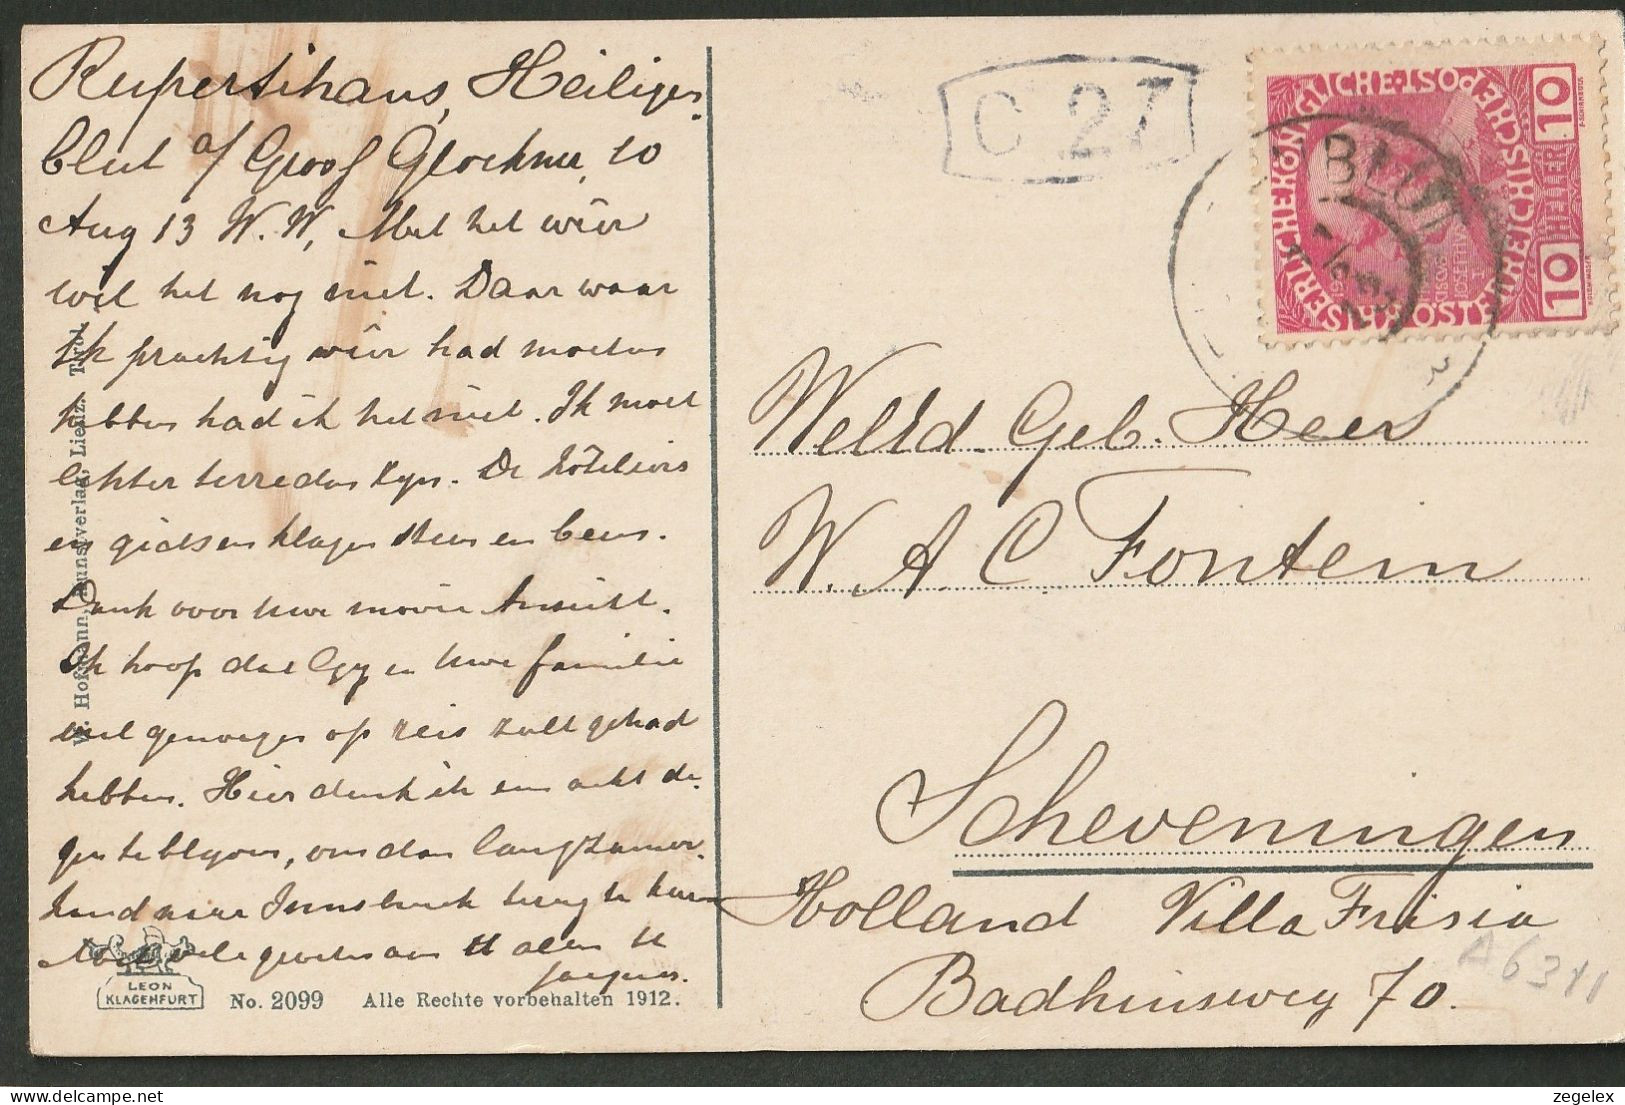 Rupertihaus, Heiligen
blut a/ Groof Glockner, 10
Aug 13 W. W, Met het wêer
wil het nog niet. Daar waar
ik prachtig wêer had moeten
hebben had ik het niet. Ik moet
echter terreden zyn. De hôteliers
en gidsen klagen steen en been.
Dank voor Uwe mooie Ansicht.
Ik hoop dat Gy en Uwe familie
veel genoegen op reis zult gehad
hebben. Hier denk ik een acht da-
gen te blyven, om dan langzamer-
hand naar Innsbruck terug te keeren
Met vele groeten aan U allen tt
Jacques.
W. Hofmann, Kunstverlag, Lienz. Tirol
LEON
KLAGENFURT
No. 2099 Alle Rechte vorbehalten 1912.
C 27
KAISERLICHE KÖNIGLICHE ÖSTERREICHISCHE POST
10 HELLER 10
BLUT
WelEd. Geb. Heer
W. A. C. Fontein
Scheveningen
Holland Villa Frisia
Badhuisweg 70.
A6311
zegelex